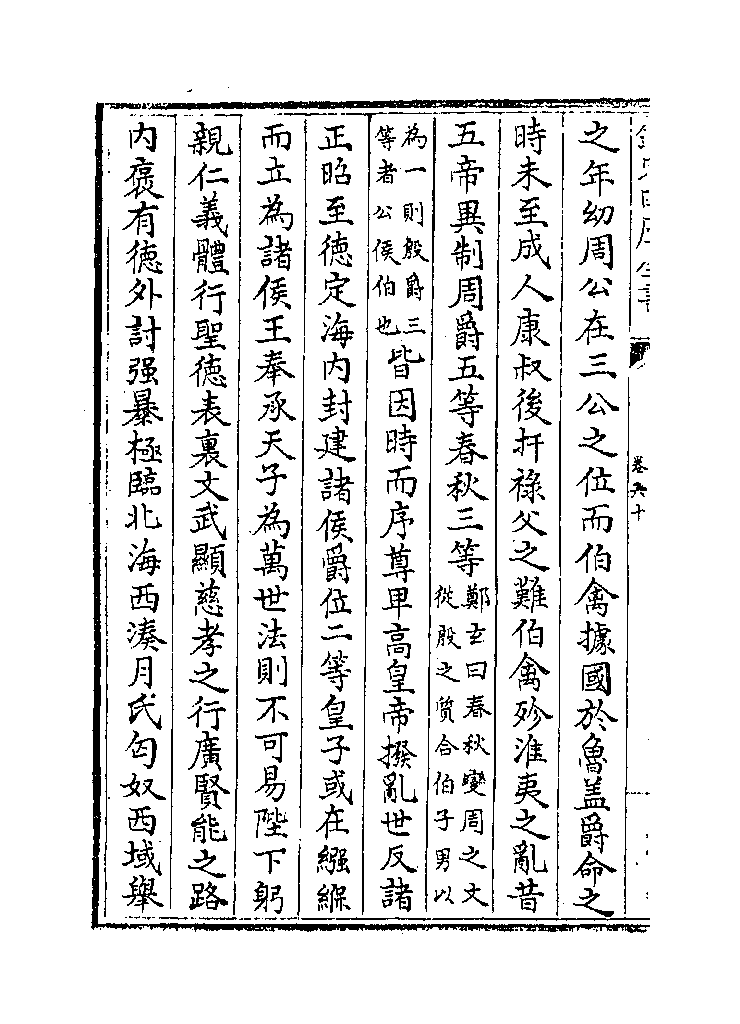 卷六十
之年幼周公在三公之位而伯禽據國於魯盖爵命之
時未至成人康叔後扞祿父之難伯禽殄淮夷之亂昔
五帝異制周爵五等春秋三等鄭玄曰春秋變周之文從殷之質合伯子男以
為一則殷爵三等者公侯伯也皆因時而序尊卑高皇帝撥亂世反諸
正昭至德定海内封建諸侯爵位二等皇子或在繈緥
而立為諸侯王奉承天子為萬世法則不可易陛下躬
親仁義體行聖德表裏文武顯慈孝之行廣賢能之路
内褒有德外討强暴極臨北海西湊月氏匈奴西域舉